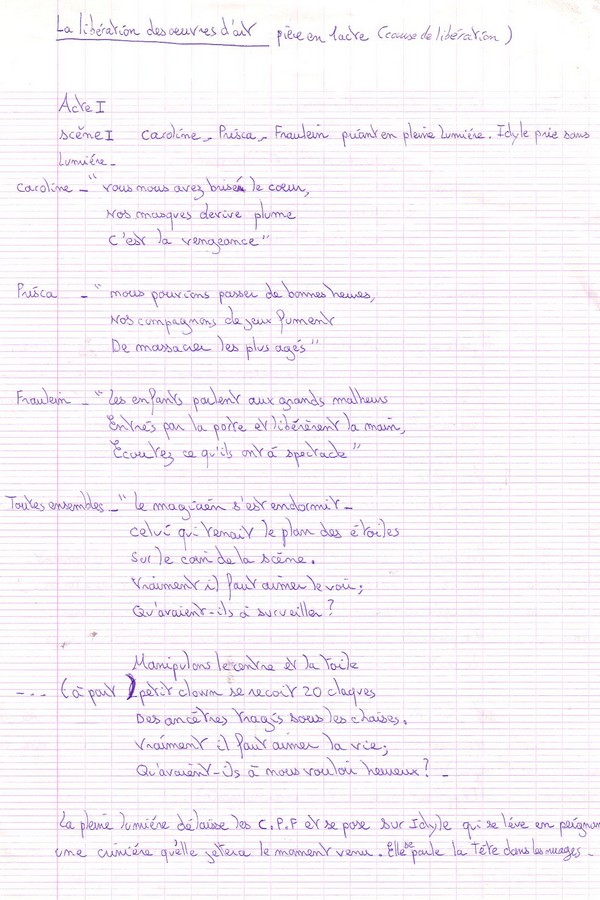 La libération des oeuvres d'art pièce en 1 acte (cause de libération)
Acte I
scène I Caroline, Prisca, Fraulein priant en pleine lumière. Idyle prie sans
lumière -
Caroline - "vous nous avez brisé le coeur,
Nos masques derive plume
C'est la vengeance"
Prisca - "nous pourrions passer de bonnes heures,
Nos compagnons de jeux fument
De massacrer les plus agés"
Fraulein - "Les enfants parlent aux grands malheurs
Entrés par la porte et libérèrent la main,
Ecoutez ce qu'ils ont à spectacle"
Toutes ensembles - "le magicien s'est endormit -
celui qui tenait le plan des étoiles
Sur le coin de la scène.
Vraiment il faut aimer le voir;
Qu'avaient-ils à surveiller?
Manipulons le centre et la toile
--- (à part) petit clown se recoit 20 claques
Des ancêtres tragis sous les chaises.
Vraiment il faut aimer la vie;
Qu'avaient-ils à nous vouloir heureux? -
La pleine lumière délaisse les C.P.F et se pose sur Idyle qui se lève en peignan
une crinière qu'elle jetera le moment venu. Elle se parle la Tête dans les nuages -